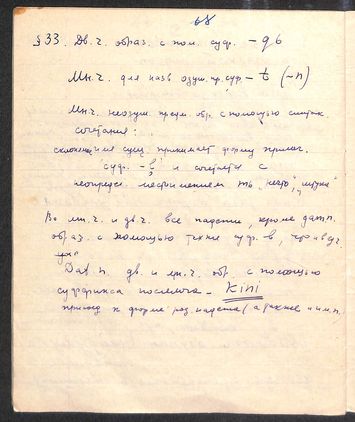 68
§33. Дв. ч. образ. с пом. суф. – qб
Мн. ч. для назв одуш. пр. суф. – t (~n)
Мн. ч. неодуш. предм. обр. с помощью синтак.
сочетания:
имя сущ принимает форму прилаг.
суф. и сочетается с
неопредел. местоимением "нечто", "штука"
Во мн. ч. и дв. ч. все падежи, кроме дат. п.
образ. с помощью тех же суф-в, что и ед.
Дат п. дв. и мн. ч. обр. с помощью
суффикса послелога – Kini
к форме род. падежа (а также и им. п.